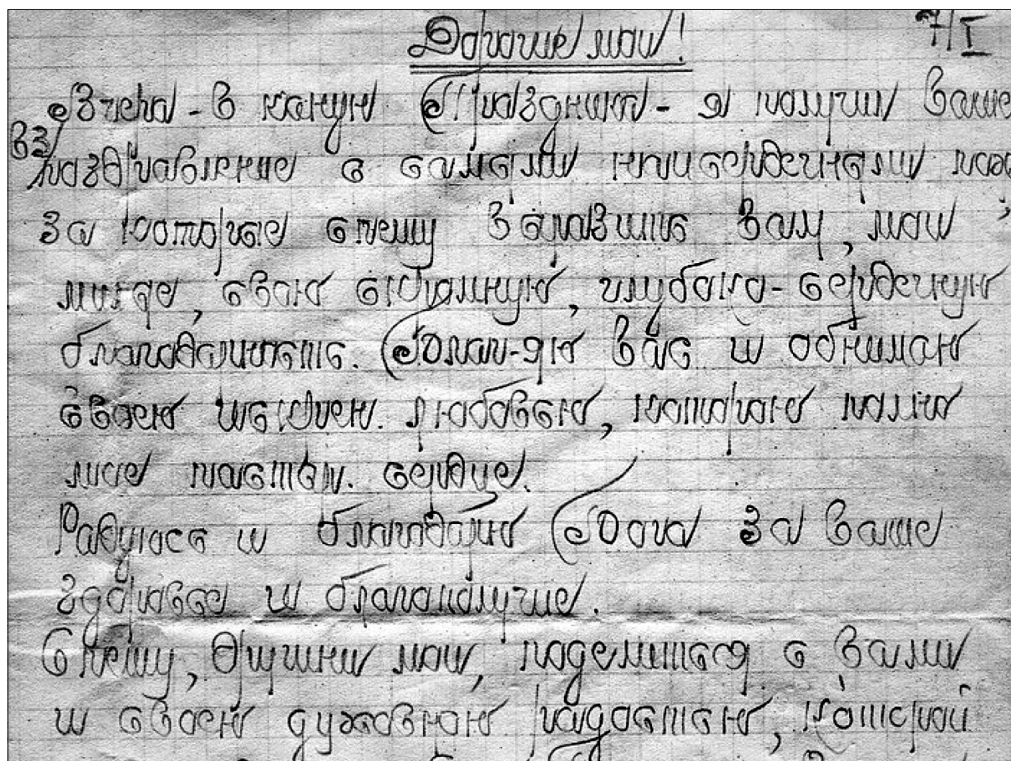 Дорогие мои! 7/I
Вчера - в канун Праздника - я получил Ваше
поздравление с самыми наисердечными пож
за которые спешу выразить Вам, мои
милые, свою глубоко-сердечную
благодарность. Вас и обнимаю
своею искрен. любовью, которою полно
мое пастыр. сердце.
Радуюсь и благодарю Бога за Ваше
здоровье и благополучие.
Спешу, мои, поделиться с Вами
и своею духовною радостью, которой